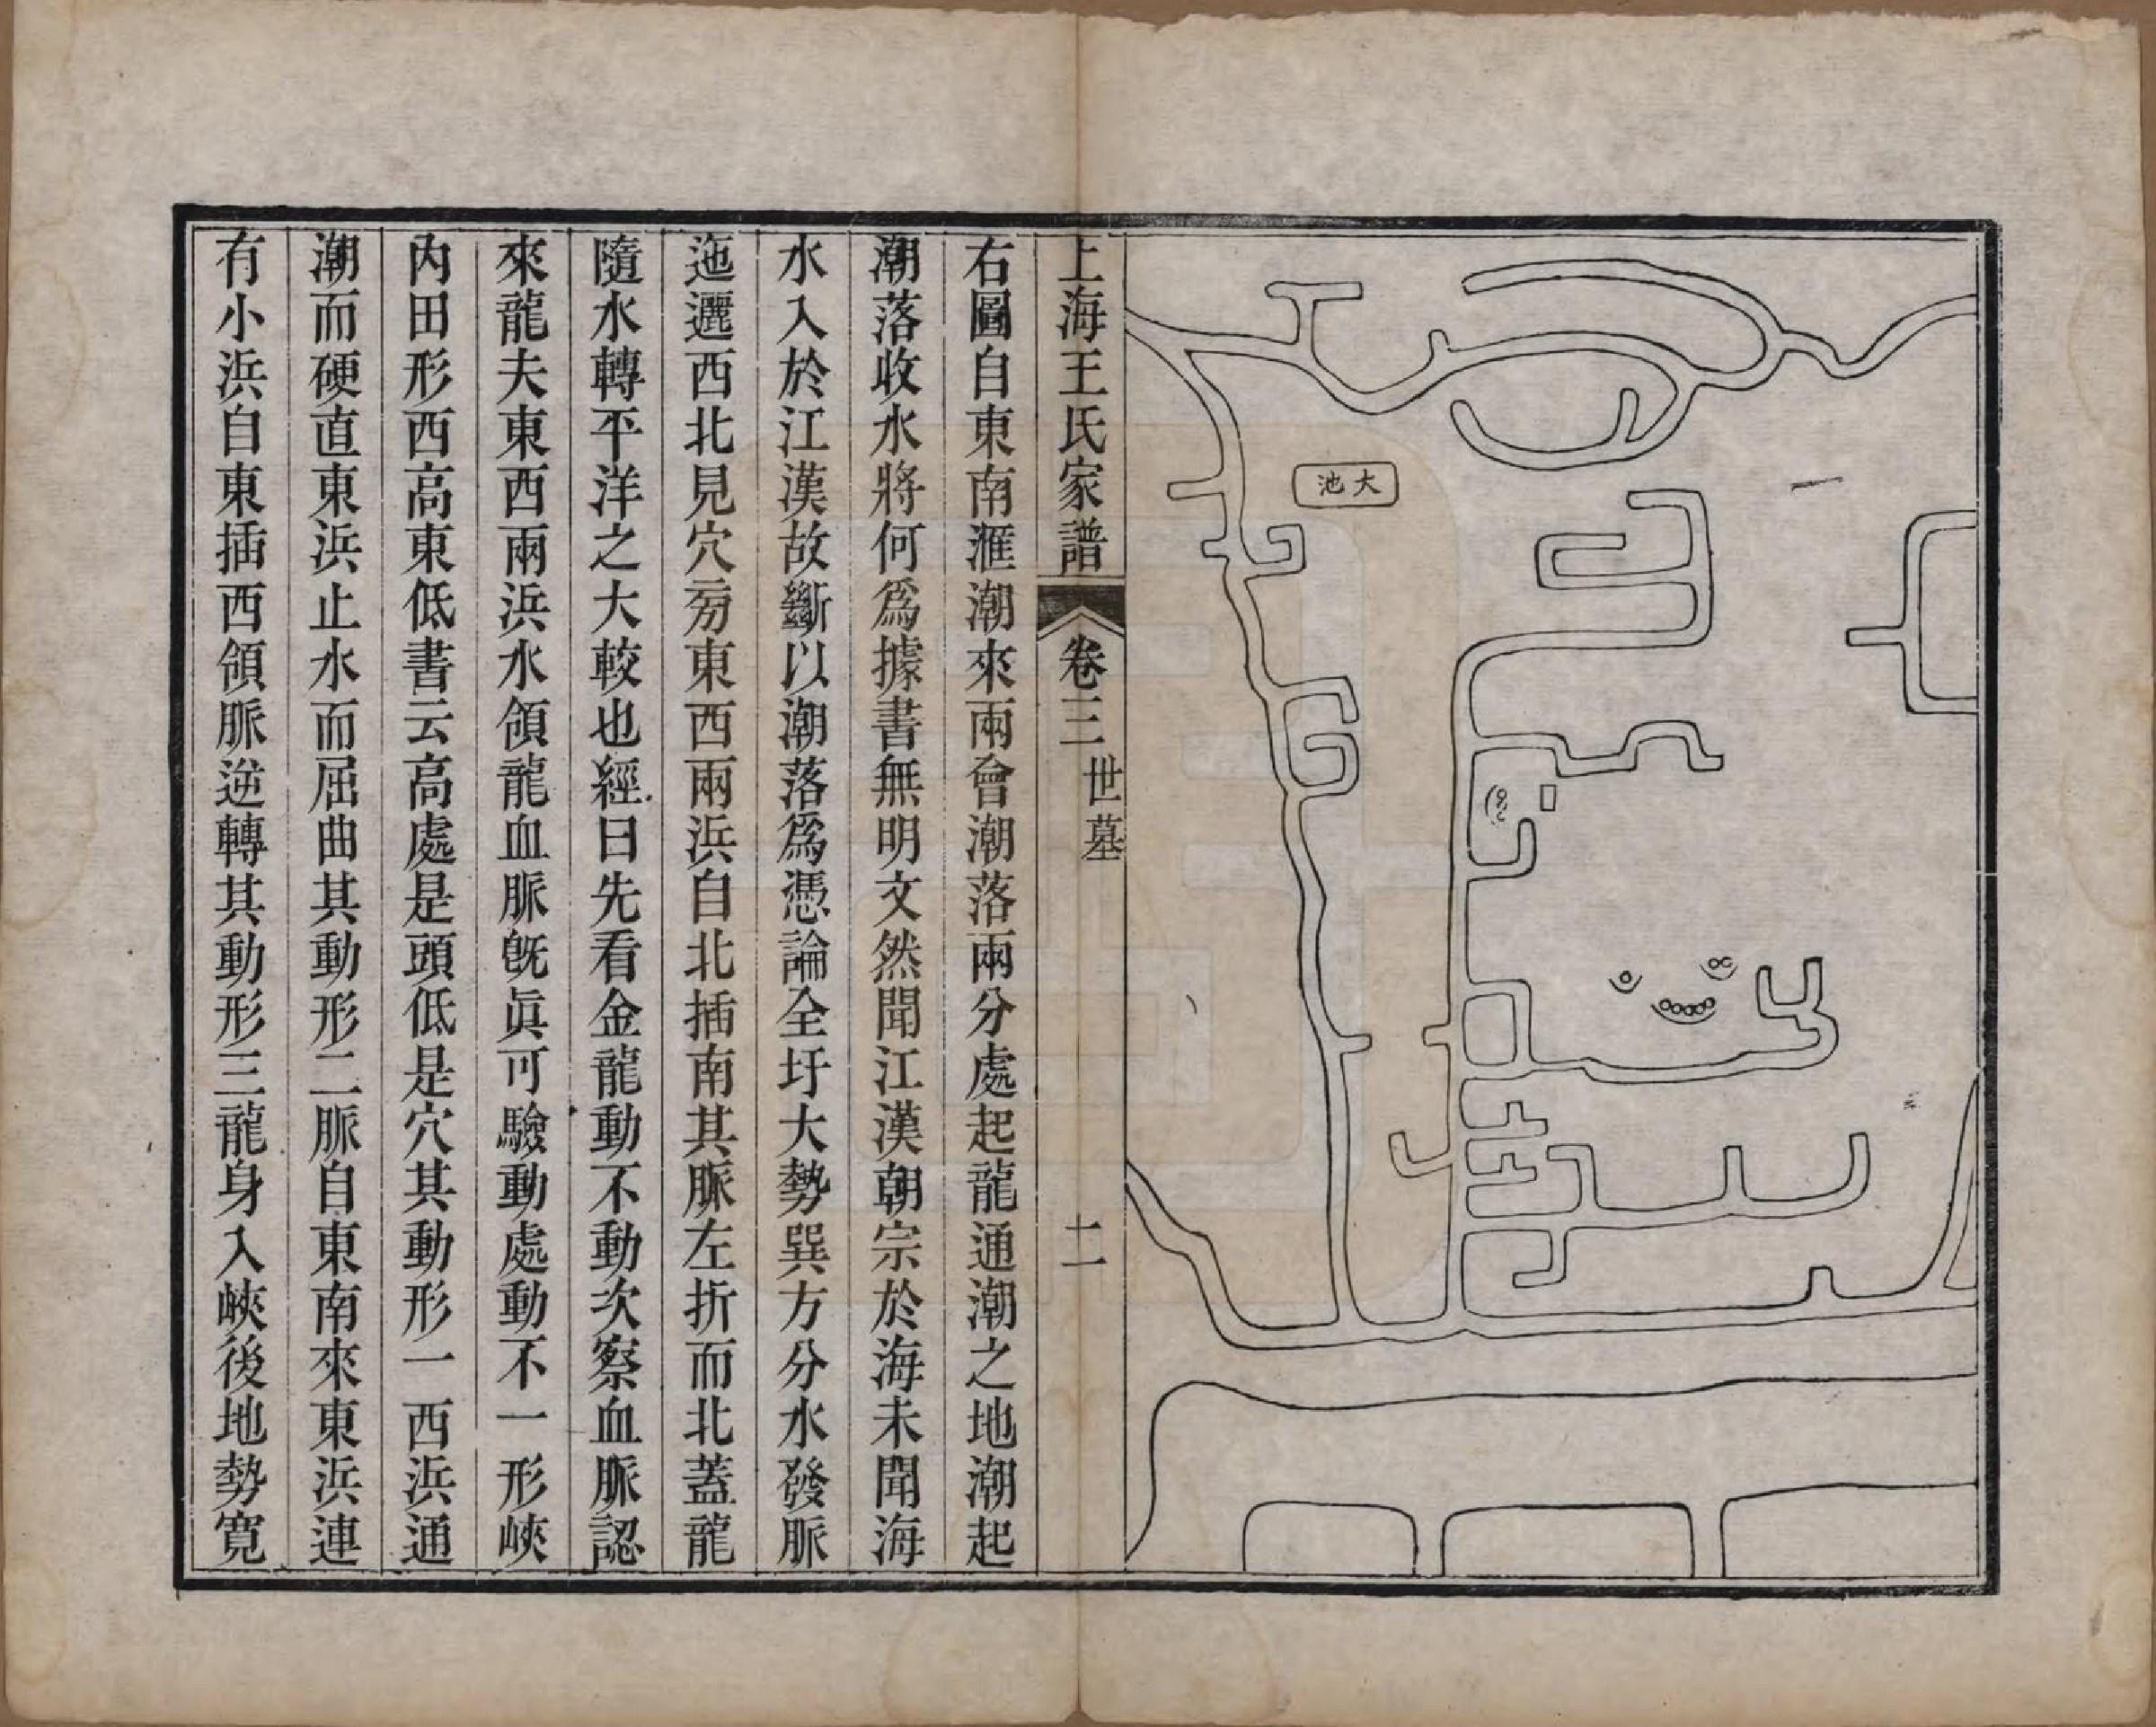 大池
上海王氏家譜 卷三 世墓 十一
右圖自東南滙潮來兩會潮落兩分處起龍通潮之地潮起
潮落收水將何爲據書無明文然聞江漢朝宗於海未聞海
水入於江漢故斷以潮落爲憑論全圩大勢巽方分水發脈
迤邐西北見穴㫄東西兩浜自北插南其脈左折而北蓋龍
隨水轉平洋之大較也經曰先看金龍動不動次察血脈認
來龍夫東西兩浜水領龍血脈旣眞可驗動處動不一形峽
內田形西高東低書云高處是頭低是穴其動形一西浜通
潮而硬直東浜止水而屈曲其動形二脈自東南來東浜連
有小浜自東插西領脈逆轉其動形三龍身入峽後地勢寬